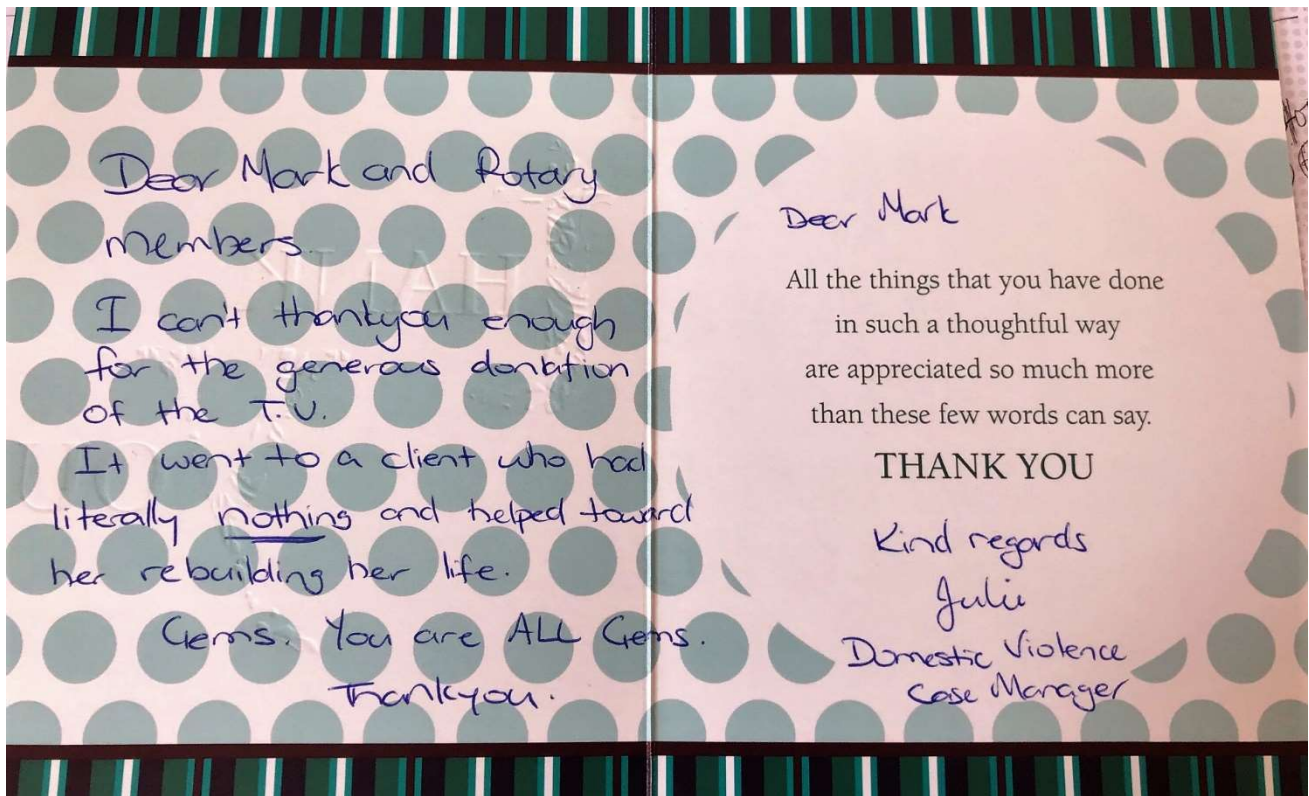 Dear Mark and Rotary
members.
I can't thankyou enough
for the generous donation
of the T.V.
It went to a client who had
literally nothing and helped toward
her rebuilding her life.
Gems. You are ALL Gems.
Thankyou.
Dear Mark
All the things that you have done
in such a thoughtful way
are appreciated so much more
than these few words can say.
THANK YOU
Kind regards
Julie
Domestic Violence
Case Manager